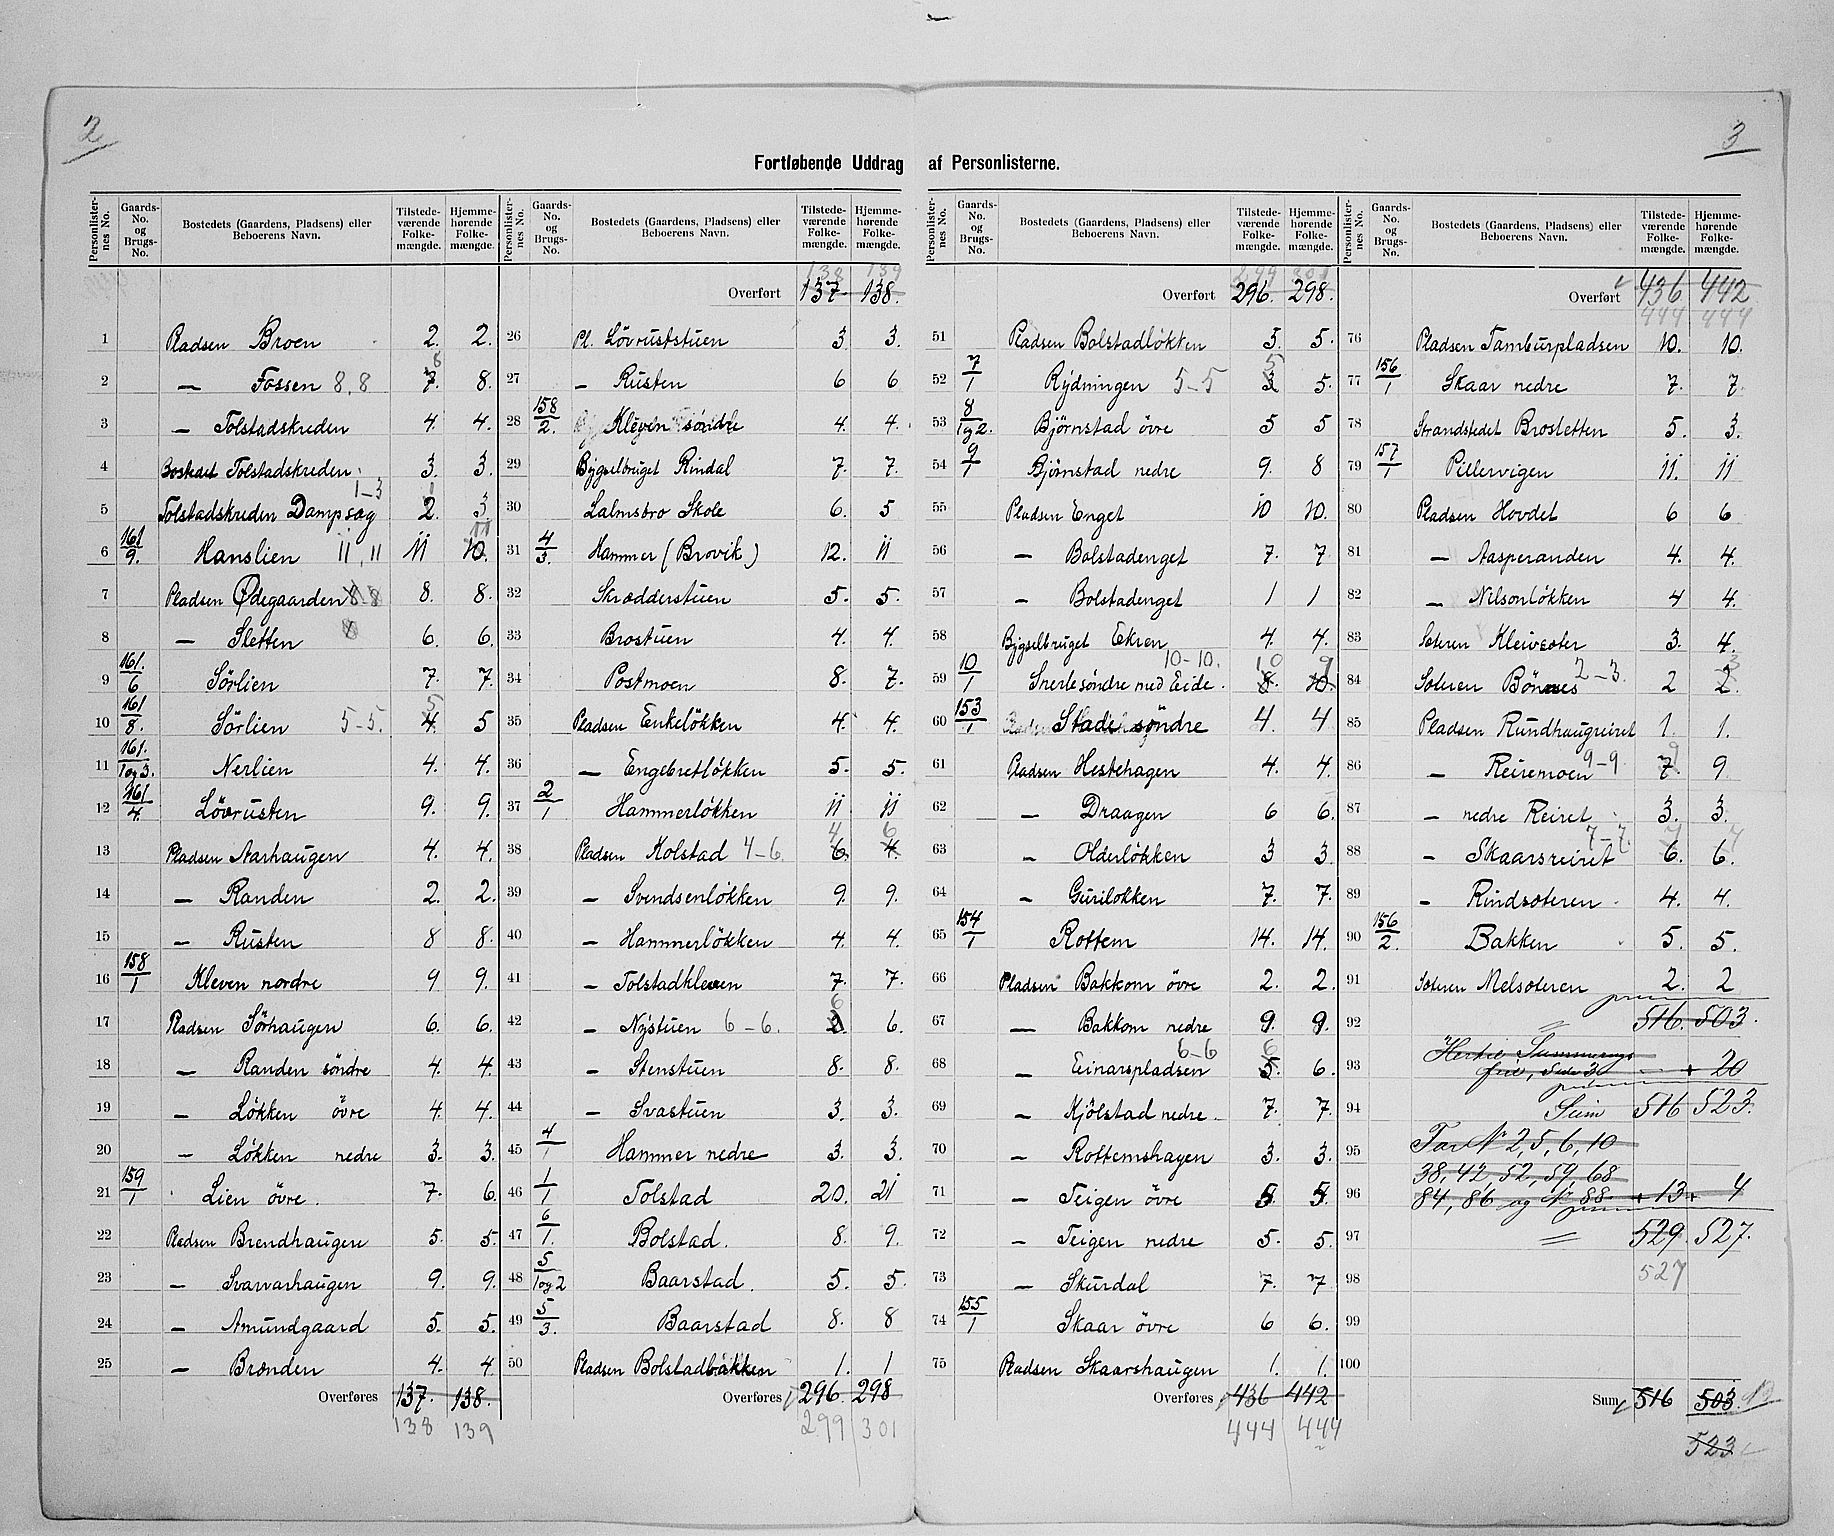 2
3
Fortløbende Uddrag af Personlisterne.
Personlister-nes No. | Gaards-No. og Brugs-No. | Bostedets (Gaardens, Pladsens) eller Beboerens Navn. | Tilstede-værende Folke-mængde. | Hjemme-hørende Folke-mængde.
1 Pladsen Broen 2. 2.
2 — Fossen 8,8 7. 8 8.
3 — Tolstadskreden 4. 4.
4 Bostedet Tolstadskreden 3. 3.
5 Tolstadskreden Dampsag 1-3 2. 3
6 161/9. Hanslien 11, 11 11 10. 11
7 Pladsen Ødegaarden 8 8 8. 8.
8 — Sletten 6. 6.
9 161./6 Sörlien 7. 7.
10 161/8. Sörlien 5-5. 4. 5 5
11 161./1og3. Nerlien 4. 4.
12 161/4. Lövrusten 9. 9.
13 Pladsen Aarhaugen 4. 4.
14 — Randen 2. 2.
15 — Rusten 8 8.
16 158/1 Kleven nordre 9 9.
17 Pladsen Sörhaugen 6. 6.
18 — Randen söndre 4. 4.
19 — Lökken övre 4. 4.
20 — Lökken nedre 3. 3.
21 159/1 Lien övre. 7. 6.
22 Pladsen Brendhaugen 5. 5.
23 — Svarvarhaugen 9. 9.
24 — Amundgaard 5. 5.
25 — Brænden 4. 4
Overføres 137. 138.
138 139
Personlister-nes No. | Gaards-No. og Brugs-No. | Bostedets (Gaardens, Pladsens) eller Beboerens Navn. | Tilstede-værende Folke-mængde. | Hjemme-hørende Folke-mængde.
138 139
Overført 137. 138.
26 Pl. Lövruststuen 3. 3.
27 — Rusten 6 6
28 158/2. Kleven söndre 4. 4.
29 Bygselbruget Rindal 7. 7.
30 Lalmsbro Skole 6. 5
31 4/3. Hammer (Brovik) 12. 11
32 Skrædderstuen 5. 5.
33 Brostuen 4. 4.
34 Postmoen 8. 7.
35 Pladsen Enkelökken 4. 4.
36 — Engebretlökken 5. 5.
37 2/1 Hammerlökken 11 11
38 Pladsen Kolstad 4-6 6. 4 4. 6
39 — Svendsenlökken 9. 9.
40 — Hammerlökken 4. 4.
41 — Tolstadkleven 7. 7.
42 — Nystuen 6-6. 6 6.
43 — Stenstuen 8. 8.
44 — Svastuen 3. 3.
45 4/1 Hammer nedre 3. 3.
46 1/1 Tolstad 20. 21
47 6/1. Bolstad. 8. 9.
48 5/1og2 Baarstad. 5. 5.
49 5/3. Baarstad 8. 8
50 Pladsen Bolstadbakken 1. 1
Overføres 296. 298
299 301
Personlister-nes No. | Gaards-No. og Brugs-No. | Bostedets (Gaardens, Pladsens) eller Beboerens Navn. | Tilstede-værende Folke-mængde. | Hjemme-hørende Folke-mængde.
299 301
Overført 296. 298.
51 Pladsen Bolstadlökken 3. 5.
52 7/1 Rydningen 5-5 3 5 5.
53 8/1og2. Bjørnstad övre 5 5
54 9/1 Bjørnstad nedre 9. 8
55 Pladsen Enget 10 10.
56 — Bolstadenget 7. 7
57 — Bolstadenget 1 1
58 Bygselbruget Ekren 4. 4.
59 10/1 Snerlesöndre med Eide. 10-10. 8. 10 10. 9
60 153/1 Stade söndre 4 4
61 Pladsen Hestehagen 4. 4.
62 — Draagen 6 6.
63 — Olderlökken 3 3.
64 — Gurilokken 7. 7.
65 154/1 Rottem 14. 14.
66 Pladsen Bakkom övre 2. 2.
67 — Bakkom nedre 9. 9.
68 — Einarspladsen 6-6 5. 6 6.
69 — Kjölstad nedre. 7. 7.
70 — Rottemshagen 3. 3.
71 — Teigen övre 5. 5.
72 — Teigen nedre 5. 5.
73 — Skurdal 7. 7
74 155/1 Skaar övre 6 6.
75 Pladsen Skaarshaugen 1. 1.
Overføres 436 442
444 444
Personlister-nes No. | Gaards-No. og Brugs-No. | Bostedets (Gaardens, Pladsens) eller Beboerens Navn. | Tilstede-værende Folke-mængde. | Hjemme-hørende Folke-mængde.
Overført 436 442
444 444
76 Pladsen Tamburpladsen 10. 10.
77 156/1 Skaar nedre 7. 7.
78 Strandstedet Brosletten 5. 3.
79 157/1 Pillervigen 11. 11
80 Pladsen Hovdet 6 6
81 — Aasperanden 4. 4.
82 — Nilsonlökken 4 4.
83 Sæteren Kleivseter 3. 4.
84 Sæteren Bönæs 2-3. 2 2. 3
85 Pladsen Rundhaugreiret 1. 1.
86 — Reiremoen 9-9 7. 9 9
87 — nedre Reiret 3. 3.
88 — Skaarsreiret 7-7. 6. 7 6. 7
89 — Rindsæteren 4. 4.
90 156/2. Bakken 5. 5.
91 Sæteren Melsæteren 2. 2
92 516. 503.
93 Hertil Summerings
feil, Side 3 + 20
94 Sum 516 523.
95 For № 2, 5, 6, 10
38, 42, 52, 59, 68
96 84, 86 og № 88 + 13 + 4
97 529. 527.
98 527
99
100
Sum 516 503.
523